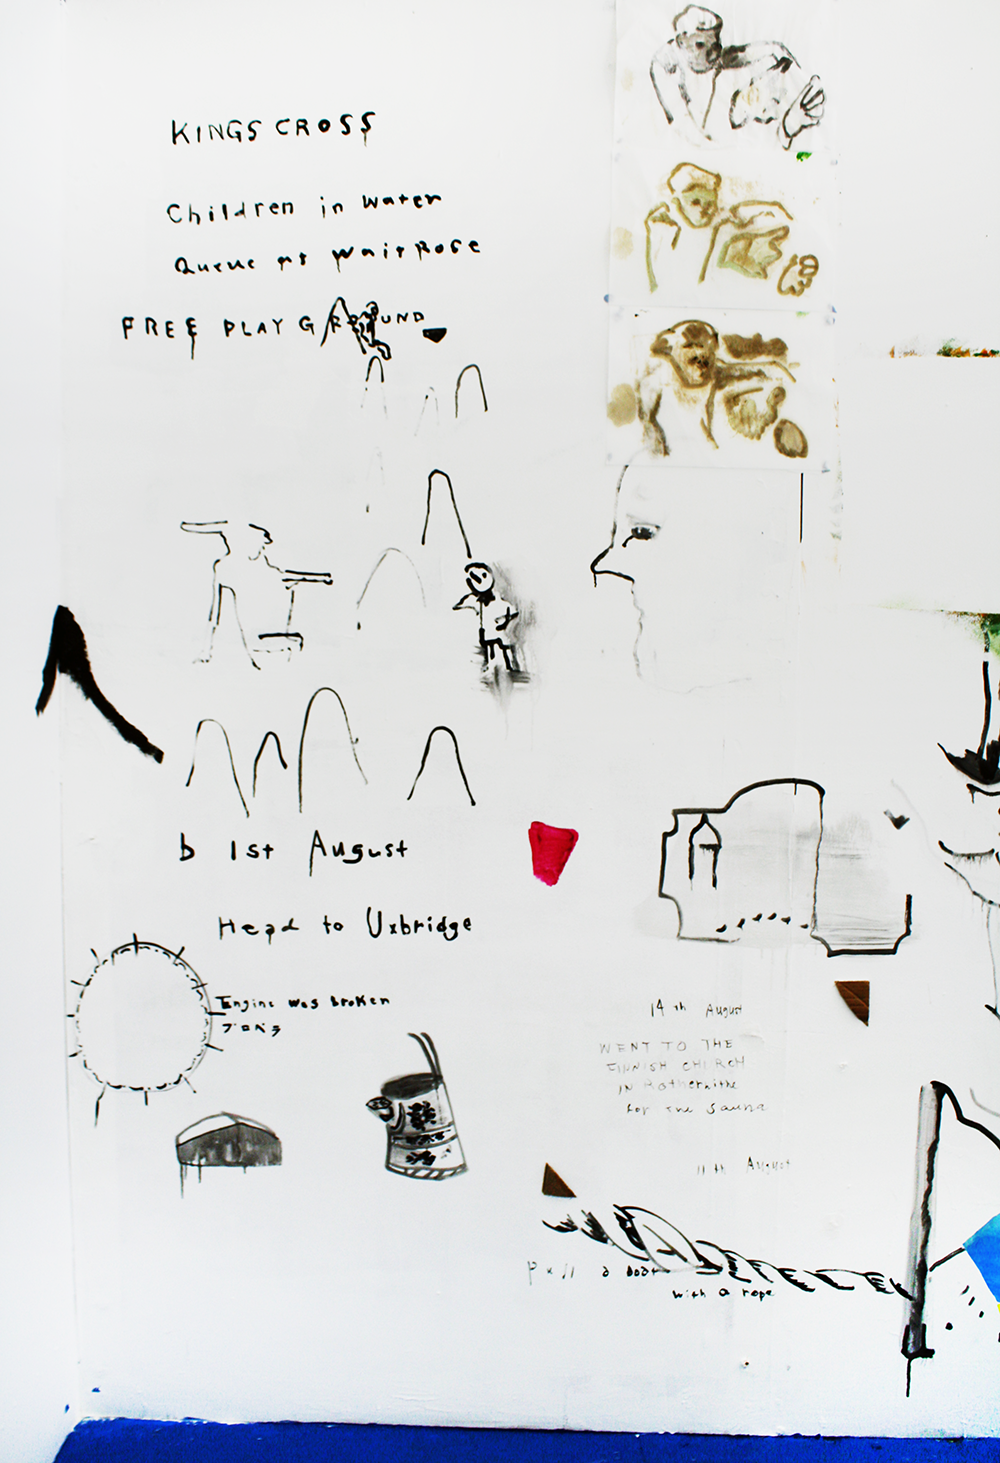 KINGS CROSS
Children in water
Queue at waitrose
FREE PLAY GROUND
b 1st August
Head to Uxbridge
Engine was broken
プロペラ
14th August
WENT TO THE
FINNISH CHURCH
IN Rotherhithe
for the sauna
11th August
Pull a boat
with a rope